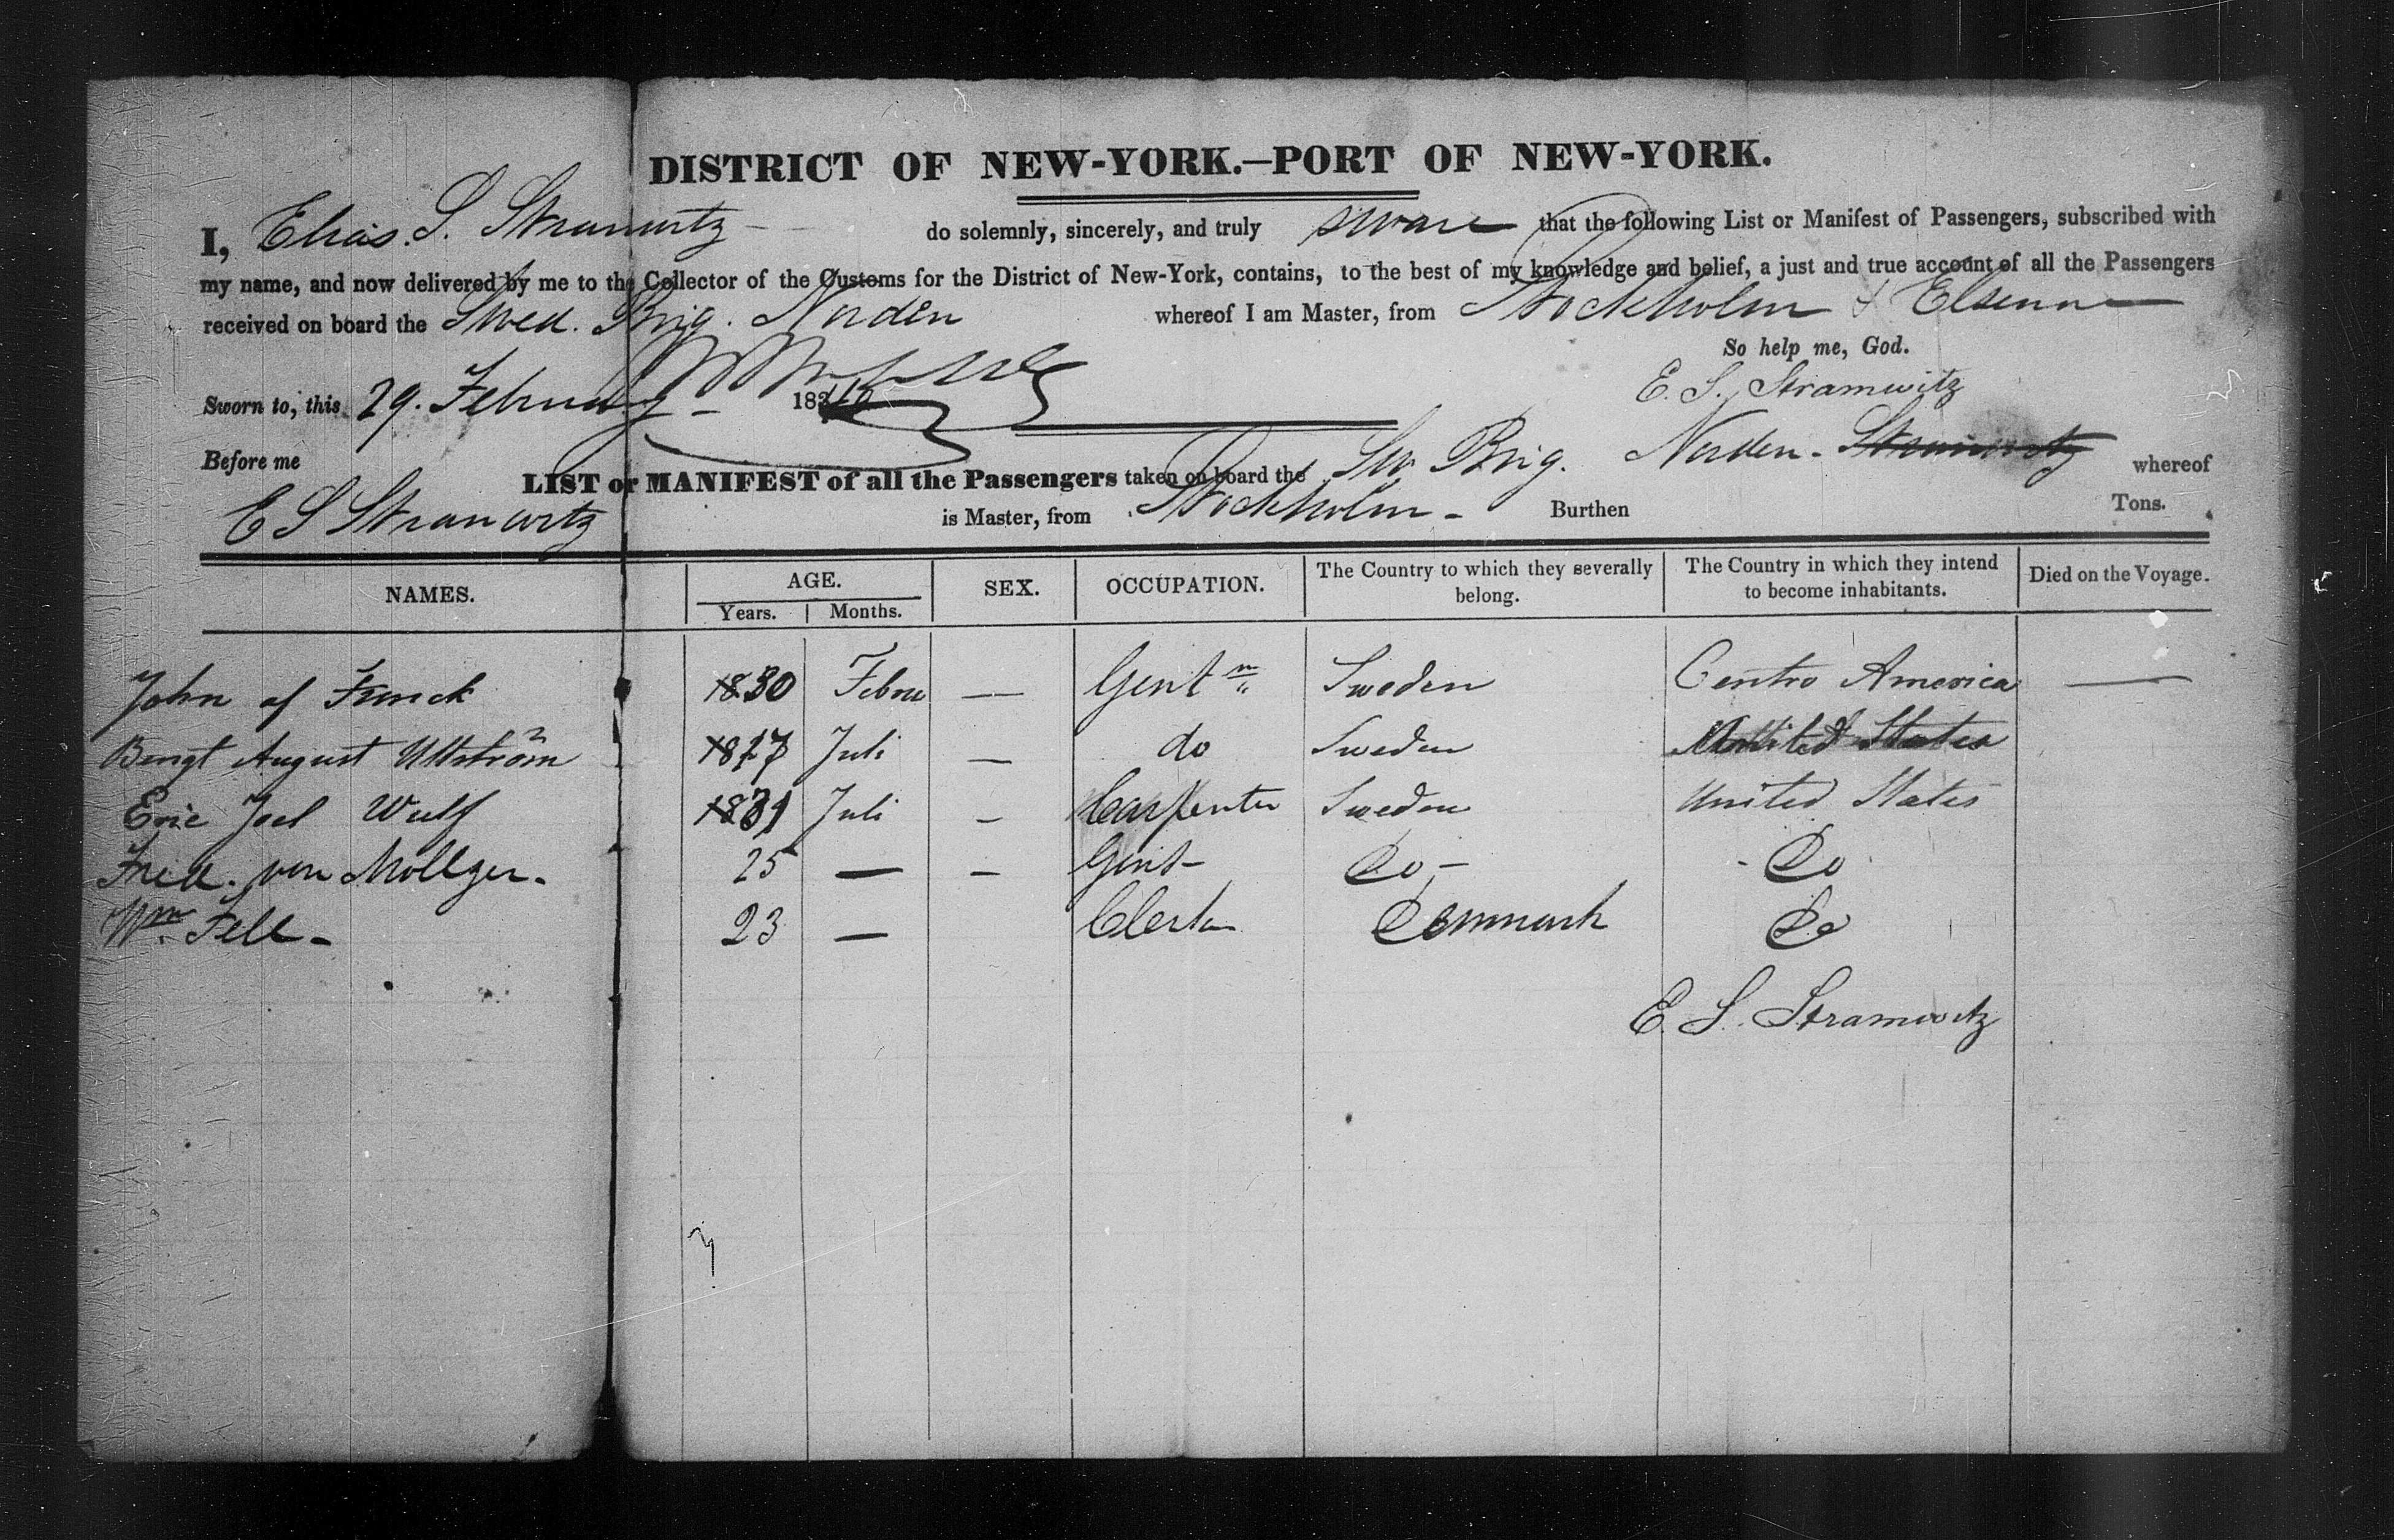 DISTRICT OF NEW-YORK.—PORT OF NEW-YORK.
I, Elias. S. Stramwitz do solemnly, sincerely, and truly sware that the following List or Manifest of Passengers, subscribed with
my name, and now delivered by me to the Collector of the Customs for the District of New-York, contains, to the best of my knowledge and belief, a just and true account of all the Passengers
received on board the Swed. Brig. Norden whereof I am Master, from Stockholm & Elsenor
So help me, God.
E. S. Stramwitz
Sworn to, this 29. February 18
Before me
LIST or MANIFEST of all the Passengers taken on board the Sw Brig. Norden - Stramwitz whereof
E S Stramwitz is Master, from Stockholm - Burthen Tons.
NAMES. AGE. SEX. OCCUPATION. The Country to which they severally belong. The Country in which they intend to become inhabitants. Died on the Voyage.
Years. Months.
John af Funck 1830 Febru — Gentm Sweden Centro America —
Bengt August Ullström 1817 Juli — do Sweden United States
Eric Joel Wulf 1831 Juli - Carpenter Sweden United States
Fred. von Mollzer. 25 — - Gent- Do - - Do
Wm. Fell - 23 — Clerk Denmark Do
E. S. Stramwitz